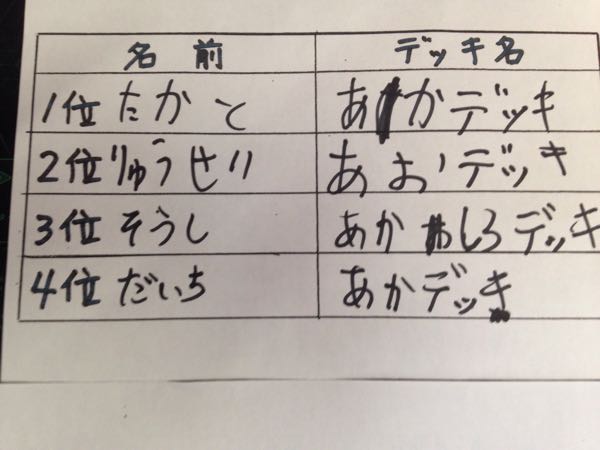 名前 デッキ名
1位 たかと あかデッキ
2位 りゅうせい あおいデッキ
3位 そうし あかしろデッキ
4位 だいち あかデッキ